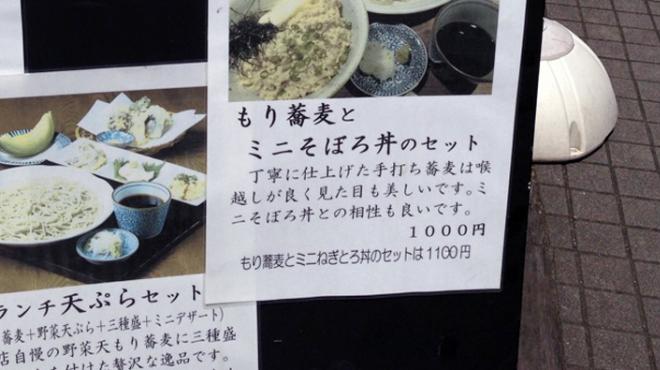 もり蕎麦と
ミニそぼろ丼のセット
丁寧に仕上げた手打ち蕎麦は喉
越しが良く見た目も美しいです。ミ
ニそぼろ丼との相性も良いです。
1000円
もり蕎麦とミニねぎとろ丼のセットは1100円
ランチ天ぷらセット
蕎麦+野菜天ぷら+三種盛+ミニデザート)
店自慢の野菜天もり蕎麦に三種盛
を付けた贅沢な逸品です。